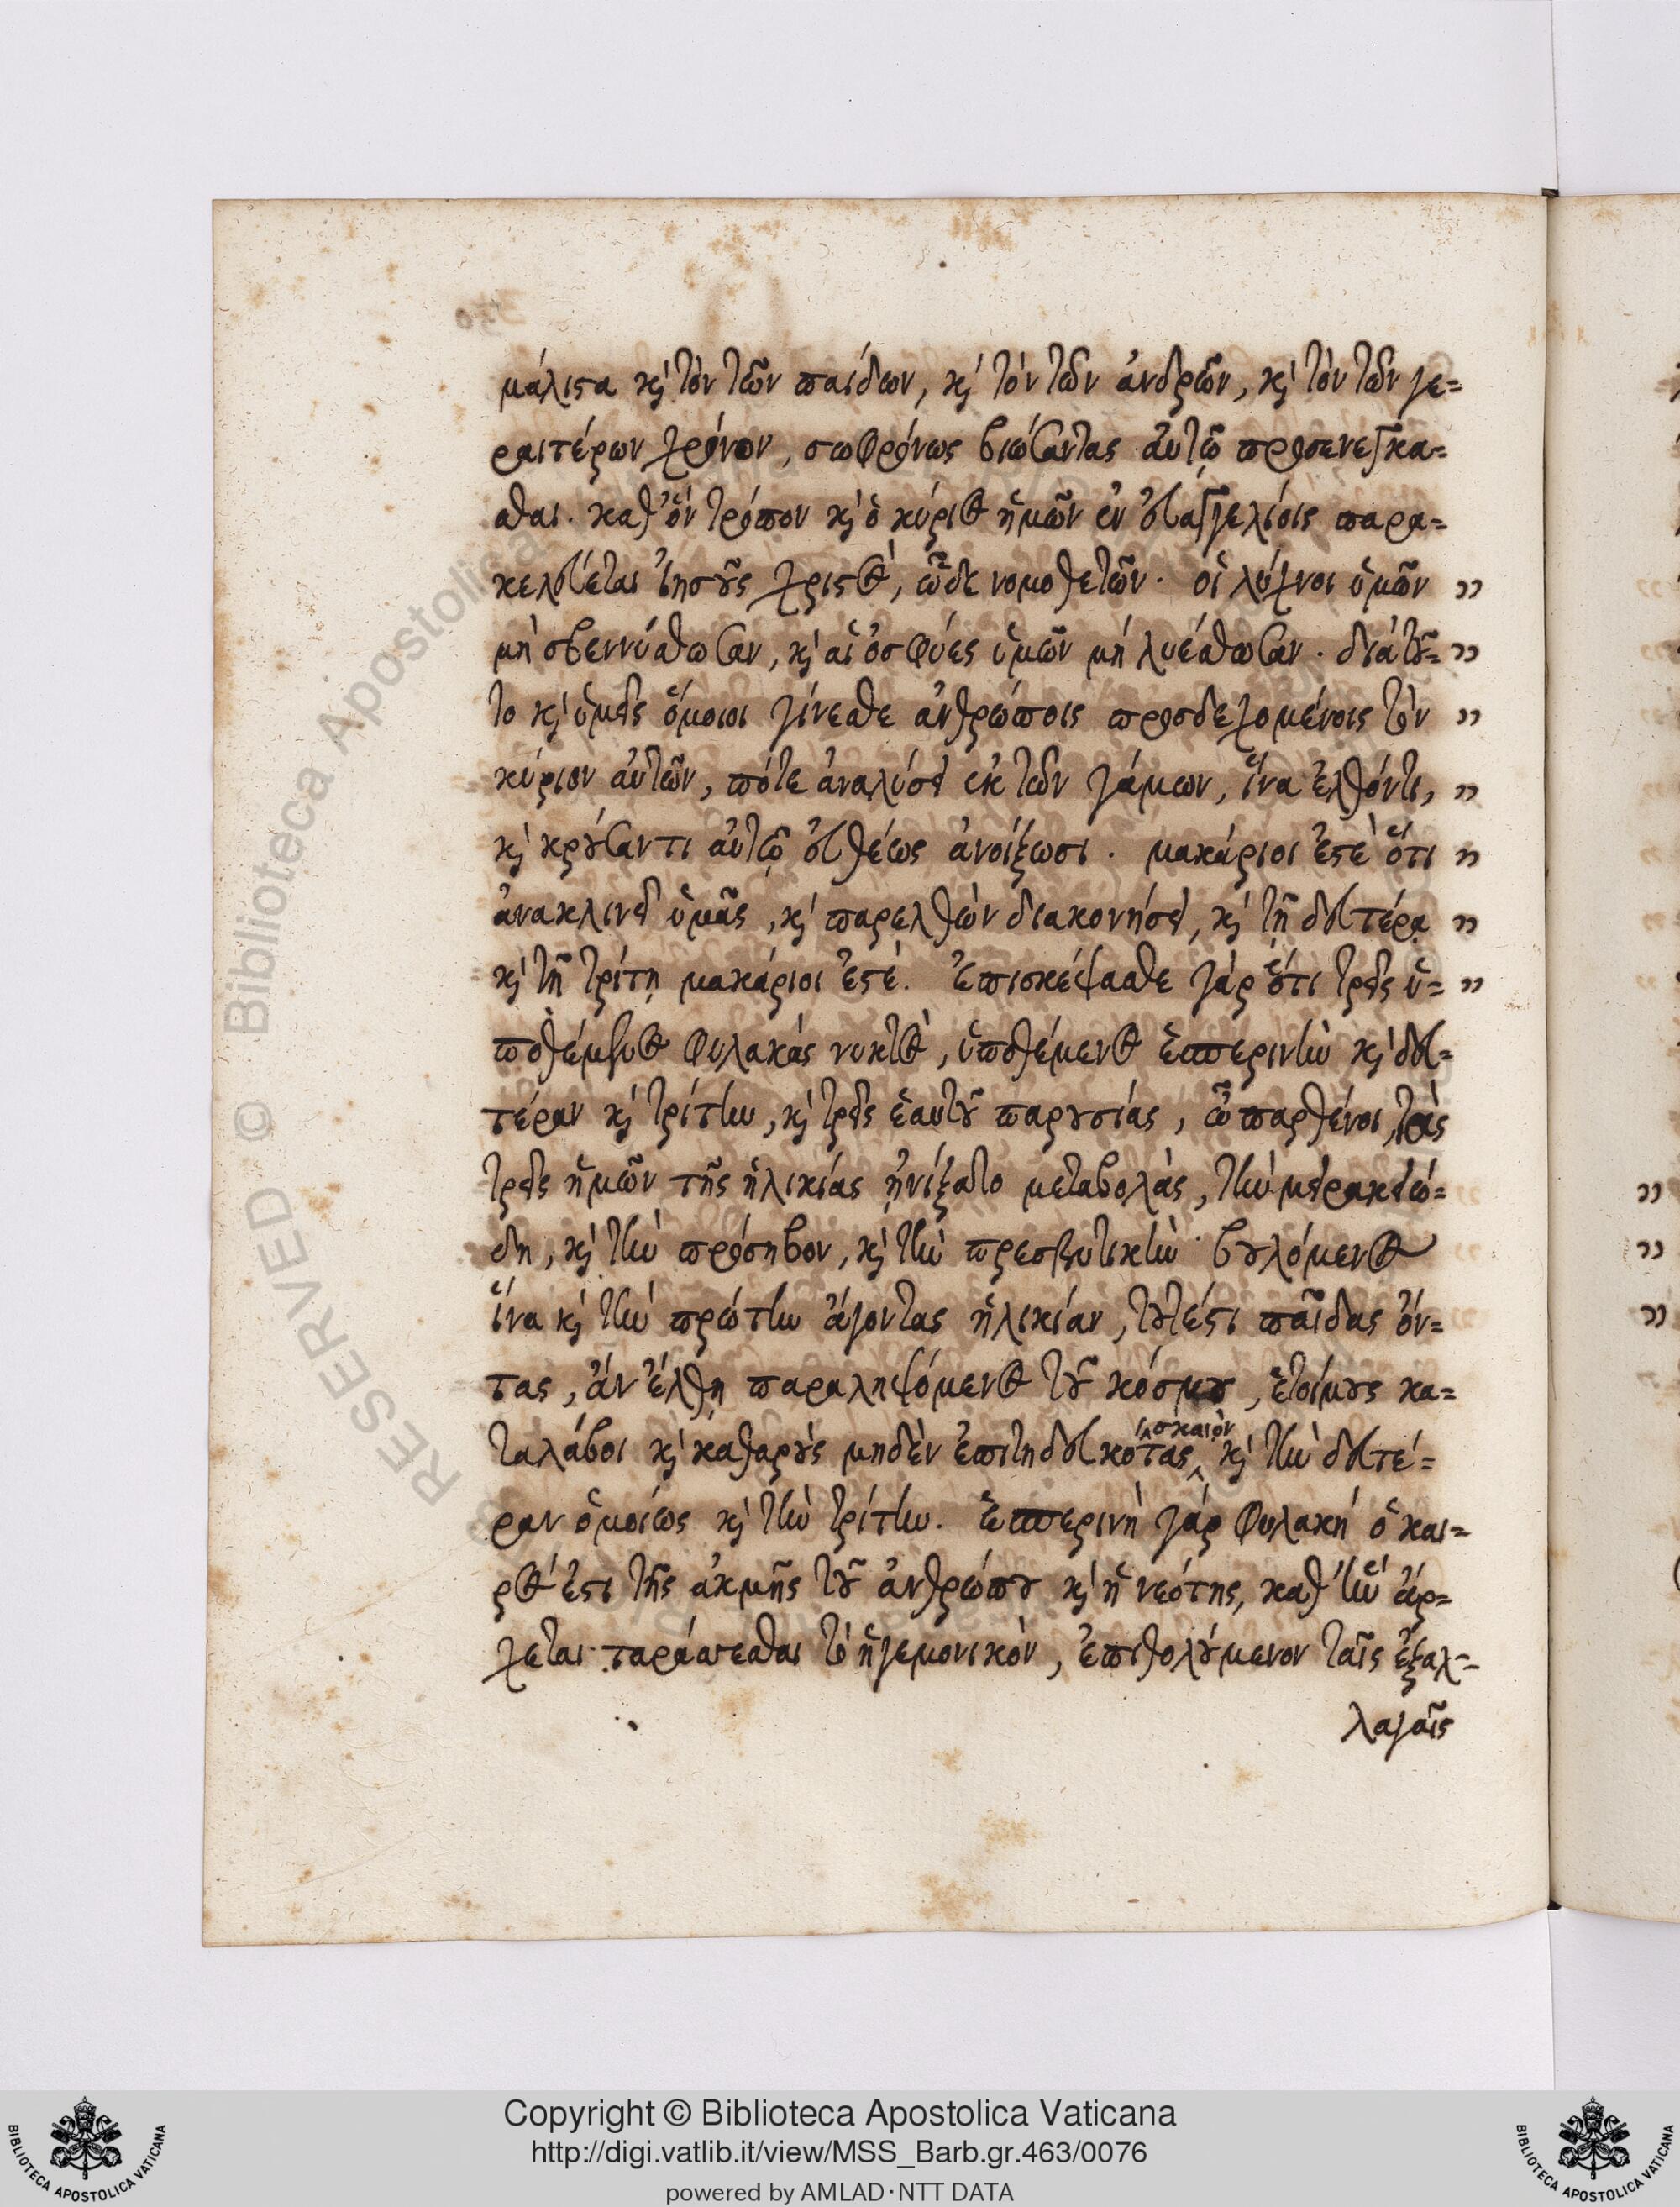 μάλιστα κὶ τὸν τῶν παίδων, κὶ τὸν τῶν ἀνδρῶν, κὶ τὸν τῶν γε=
ραιτέρων χρόνον, σωφρόνως βιώσαντας αὐτῷ προσενέγκα=
σθαι. καθ' ὃν τρόπον κὶ ὁ κύριος ἡμῶν ἐν εὐαγγελίοις παρα=
κελεύεται ἰησοῦς χριστὸς, ὧδε νομοθετῶν. οἱ λύχνοι ὑμῶν ,,
μὴ σβεννύσθωσαν, κὶ αἱ ὀσφύες ὑμῶν μὴ λυέσθωσαν. διὰ τοῦ= ,,
το κὶ ὑμεῖς ὅμοιοι γίνεσθε ἀνθρώποις προσδεχομένοις τὸν ,,
κύριον αὐτῶν, πότε ἀναλύσει ἐκ τῶν γάμων, ἵνα ἐλθόντι, ,,
κὶ κρούσαντι αὐτῷ εὐθέως ἀνοίξωσι. μακάριοι ἐστὲ ὅτι ,,
ἀνακλινεῖ ὑμᾶς, κὶ παρελθὼν διακονήσει, κὶ τῇ δευτέρᾳ ,,
κὶ τῇ τρίτῃ μακάριοι ἐστέ. Ἐπισκέψασθε γὰρ ὅτι τρεῖς ὑ= ,,
ποθέμενος φυλακὰς νυκτὸς, ὑποθέμενος ἑσπερινὴν κὶ δευ=
τέραν κὶ τρίτην, κὶ τρεῖς ἑαυτοῦ παρουσίας, ὦ παρθένοι, τὰς
τρεῖς ἡμῶν τῆς ἡλικίας ᾐνίξατο μεταβολὰς, τὴν μειρακιώ=
δη, κὶ τὴν πρόσηβον, κὶ τὴν πρεσβυτικὴν· βουλόμενος
ἵνα κὶ τὴν πρώτην ἄγοντας ἡλικίαν, τουτέστι παῖδας ὄν=
τας, ἂν ἔλθῃ παραληψόμενος τοῦ κόσμου, ἑτοίμους κα=
ταλάβοι κὶ καθαροὺς μηδὲν ἐπιτηδευκότας σκαιὸν, κὶ τὴν δευτέ=
ραν ὁμοίως κὶ τὴν τρίτην. ἑσπερινὴ γὰρ φυλακή ὁ και=
ρὸς ἐστι τῆς ἀκμῆς τοῦ ἀνθρώπου κὶ ἡ νεότης, καθ' ἣν ἄρ=
χεται ταράσσεσθαι τὸ ἡγεμονικὸν, ἐπιθολούμενον ταῖς ἐξαλ=
λαγαῖς
Copyright © Biblioteca Apostolica Vaticana
http://digi.vatlib.it/view/MSS_Barb.gr.463/0076
powered by AMLAD·NTT DATA